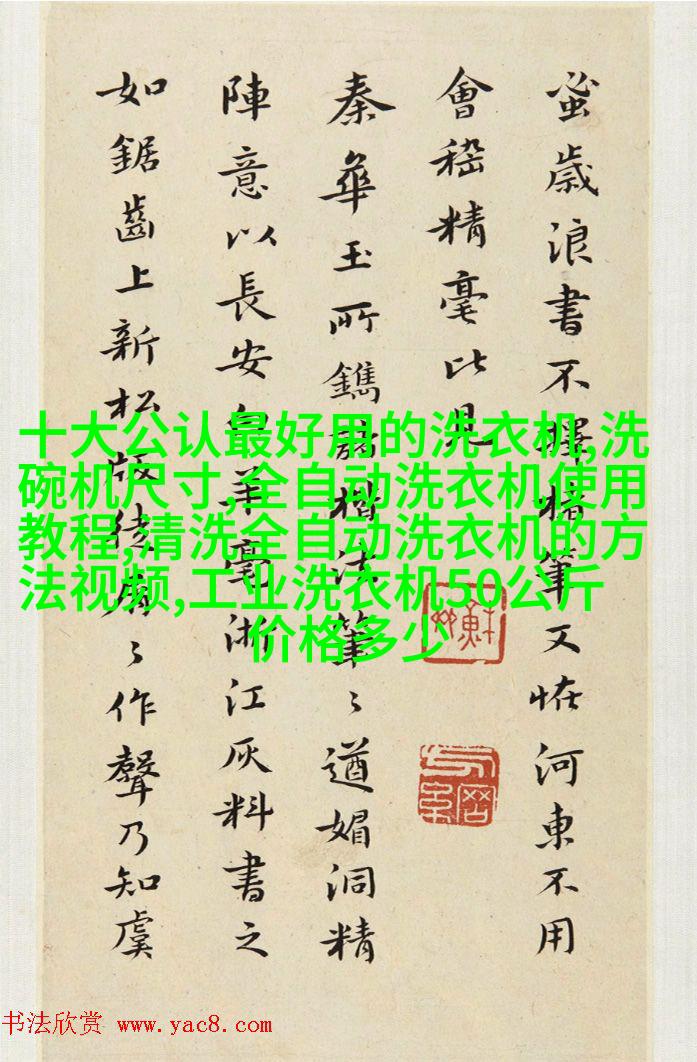 蚤歲浪書不擇楮筆又恠河東不用
會稽精毫比見
秦華玉所鐫諸楷法筆〻遒媚洞精
陣意以長安
羊毫浙江灰料書之
如鋸齒上新松版
〻作聲乃知虞
十大公认最好用的洗衣机,洗
碗机尺寸,全自动洗衣机使用
教程,清洗全自动洗衣机的方
法视频,工业洗衣机50公斤
价格多少
书法欣赏 www.yac8.com